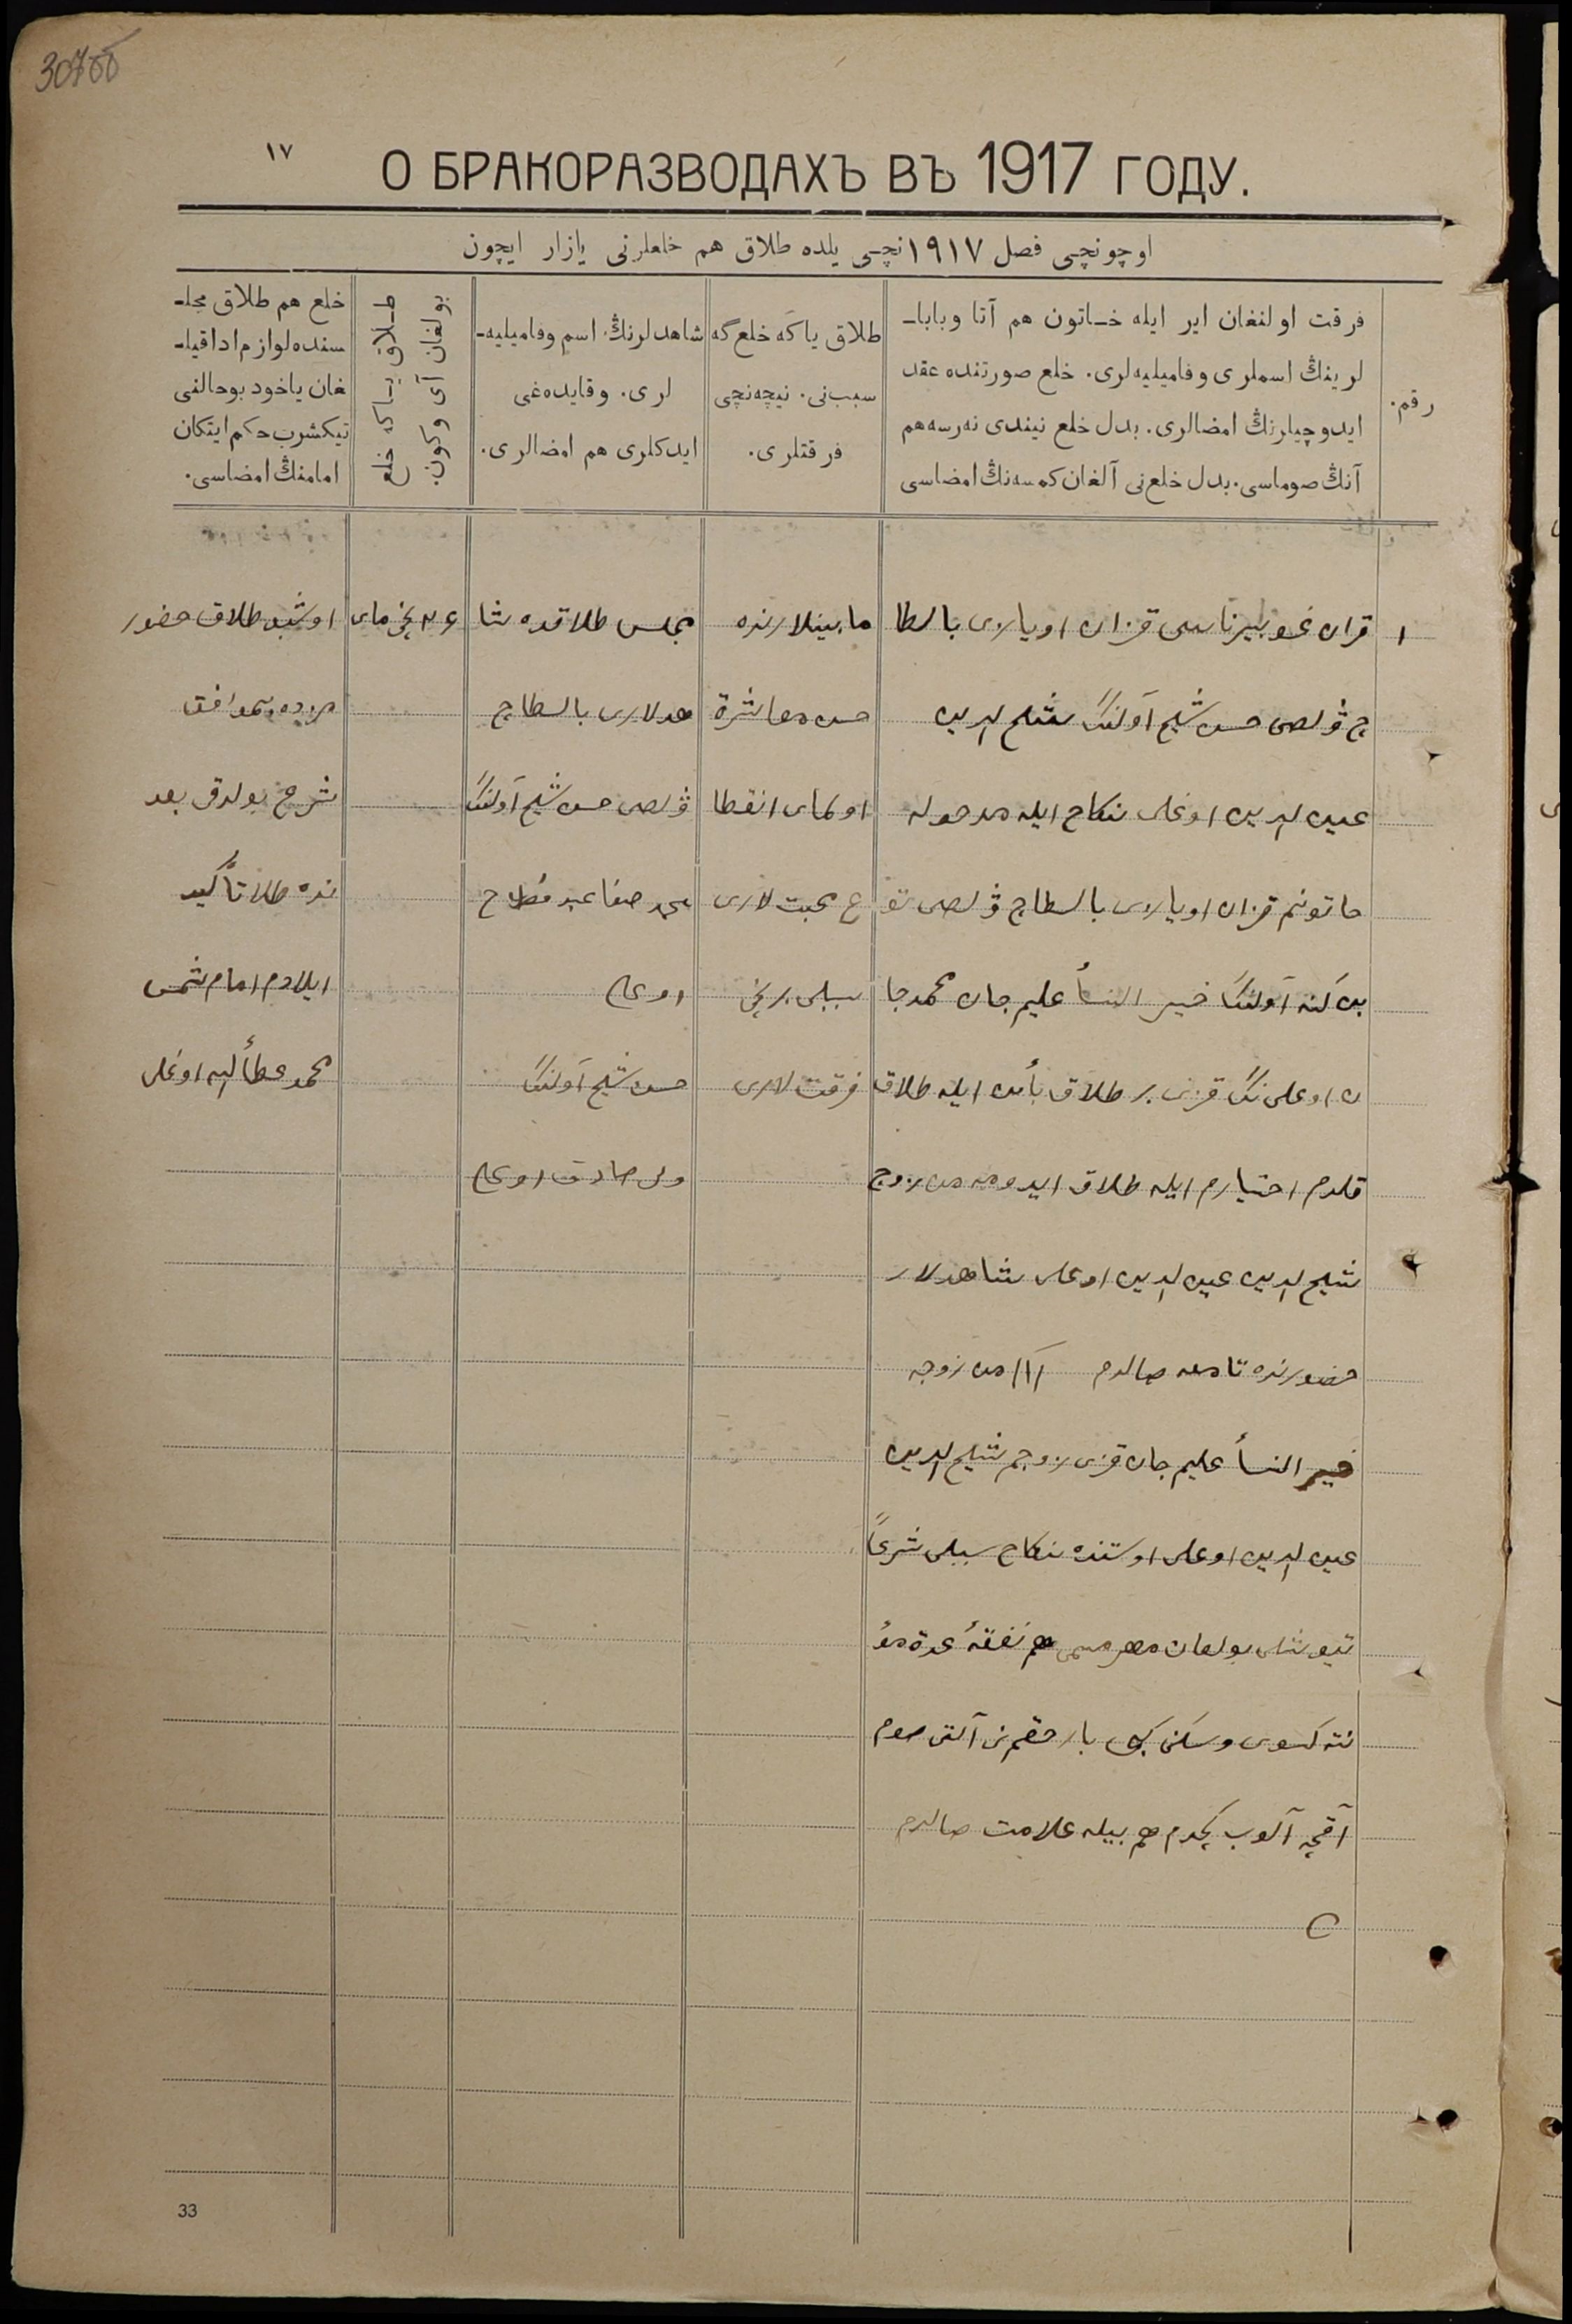 307об
١٧
О БРАКОРАЗВОДАХЪ ВЪ 1917 ГОДУ.
اوچونچی فصل ١٩١٧ نچی یلده طلاق هم خلعلرنی یازار ایچون
رقم.
فرقت اولنغان ایر ایله خـاتون هم آتا وبابا-
لرینڭ اسملری وفامیلیه‌لری. خلع صورتنده عقد
ایدوچیلرنڭ امضالری. بدل خلع نیندی نه‌رسه هم
آنڭ صوماسی. بدل خلع‌نی آلغان کمسه‌نڭ امضاسی
طلاق یاکه خلع گه
سبب‌نی. نیچه‌نچی
فرقتلری.
شاهدلرنڭ اسم وفامیلیه-
لری. وقایده‌غی
ایدکلری هم امضالری.
طـلاق یـاکه خلع
بولغان آی وکون.
خلع هم طلاق مجلـ
سنده لوازم ادا قیلـ
غان یاخود بوحالنی
تیکشرب حکم ایتکان
امامنڭ امضاسی.
١
قزان غوبیرناسی قزان اویازی بالطا
چ ۋلصی حسن شیخ آولنڭ شیخ الدین
عین الدین اوغلی نکاح ایله مدخوله
خاتونم قزان اویازی بالطاچ ۋلصی تو
بن کنه آولنڭ خیر النسأ علیم جان محمدجا
ن اوغلی نڭ قزنی بر طلاق بأین ایله طلاق
قلدم اختیارم ایله طلاق ایدوچه من زوج
شیخ الدین عین الدین اوغلی شاهدلار
حضورنده تامغه صالدم من زوجه
خیر النسأ علیم جان قزی زوجم شیخ الدین
عین الدین اوغلی اوستنده نکاح سببلی شرعاً
تیوشلی بولغان مهر مسمی هم نفقهٔ عدة مؤ
نته کسوی وسکنی کبی بار حقم نی آلتی صوم
آقچه آلوب کچدم هم بیله علامت صالدم
مابینلارنده
حسن معاشرة
اولمای انقطا
ع محبت لاری
سببلی برنچی
فرقت لاری
مجلس طلاقده شا
هدلاری بالطاچ
ۋلصی حسن شیخ آولنڭ
محمد صفا عبد
اوغلی
حسن شیخ آولنڭ
ولی صادق اوغلی
٢٦ نچی مای
اوشبو طلاق حضور
مزده موافق
شرع بولدقی بعد
نده طلا تأکید
ایلادم امام شمس
محمد عطأ الله اوغلی
33